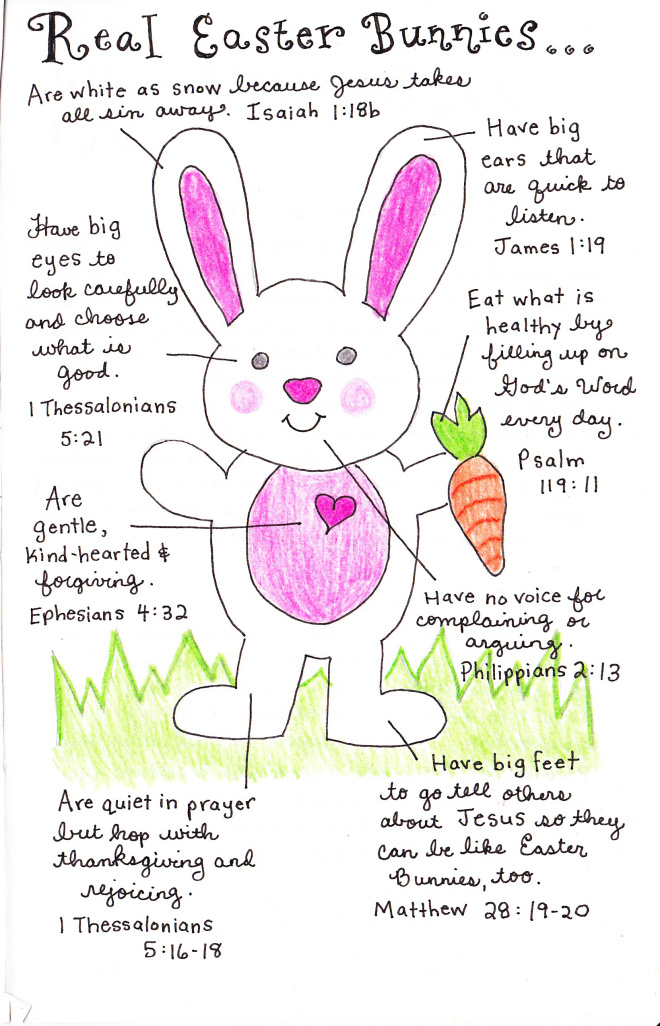 Real Easter Bunnies...
Are white as snow because Jesus takes
all sin away. Isaiah 1:18b
Have big
ears that
are quick to
listen.
James 1:19
Have big
eyes to
look carefully
and choose
what is
good.
1 Thessalonians
5:21
Eat what is
healthy by
filling up on
God's Word
every day.
Psalm
119:11
Are
gentle,
kind-hearted &
forgiving.
Ephesians 4:32
Have no voice for
complaining or
arguing.
Philippians 2:13
Have big feet
to go tell others
about Jesus so they
can be like Easter
Bunnies, too.
Matthew 28:19-20
Are quiet in prayer
but hop with
thanksgiving and
rejoicing.
1 Thessalonians
5:16-18